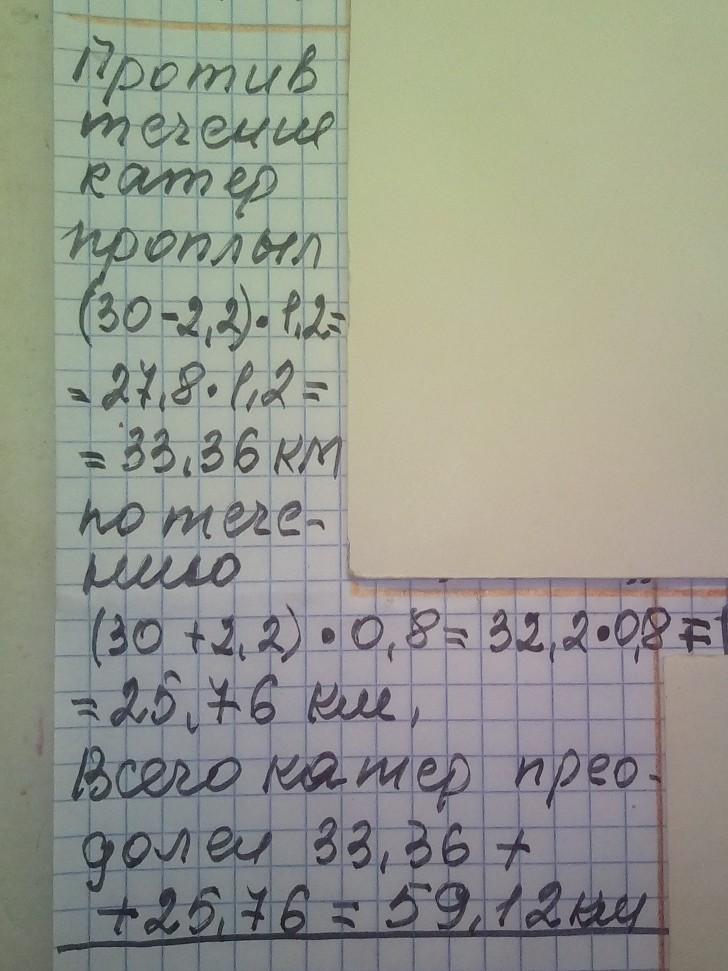 Против
течения
катер
проплыл
(30-2,2)•1,2=
=27,8•1,2=
=33,36 км
по тече-
нию
(30+2,2)•0,8=32,2•0,8=
=25,76 км,
Всего катер прео-
долел 33,36+
+25,76=59,12км